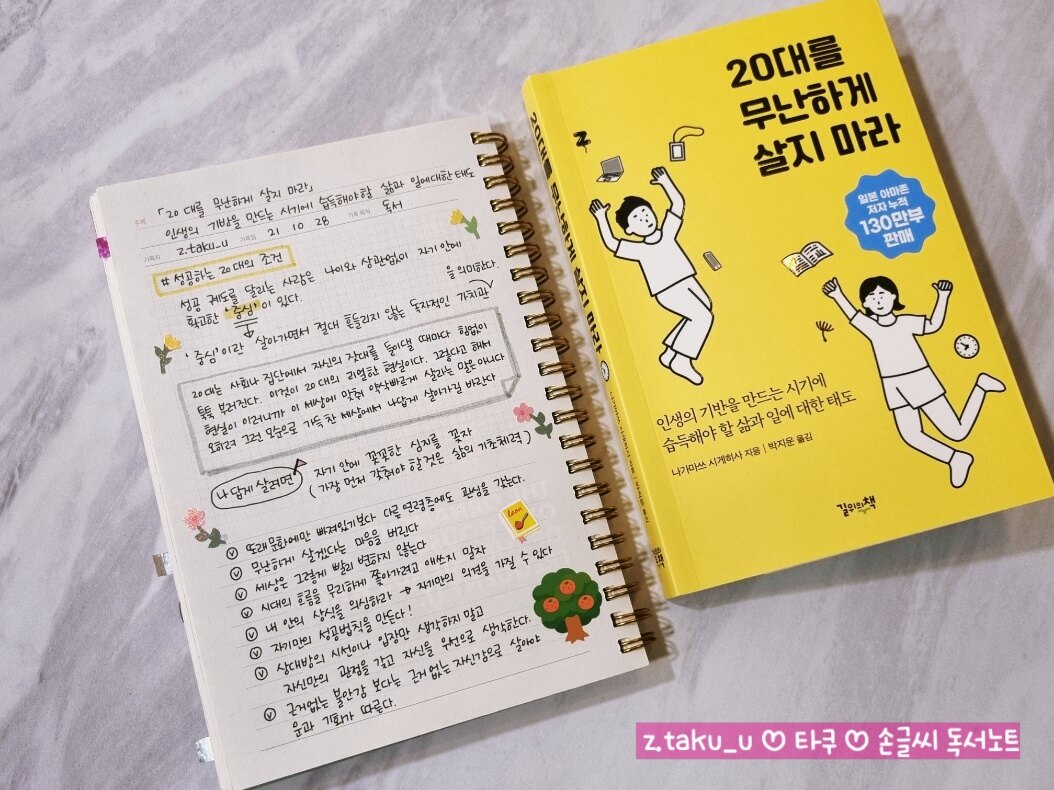 주제 「20대를 무난하게 살지 마라」
인생의 기반을 만드는 시기에 습득해야 할 삶과 일에 대한 태도
기록자 z.taku_u 기록일 21 10 28 기록 목차 독서
# 성공하는 20대의 조건
성공 궤도를 달리는 사람은 나이와 상관없이 자기 안에
확고한 '중심'이 있다.
을 의미한다.
'중심'이란 살아가면서 절대 흔들리지 않는 독자적인 가치관
20대는 사회나 집단에서 자신의 잣대를 들이댈 때마다 힘없이
툭툭 부러진다. 이것이 20대의 리얼한 현실이다. 그렇다고 해서
현실이 이러니까 이 세상에 맞춰 약삭빠르게 살라는 말은 아니다
오히려 그런 모순으로 가득한 세상에서 나답게 살아가길 바란다
나답게 살려면
자기 안에 꼿꼿한 심지를 꽂자
(가장 먼저 갖춰야 할 것은 삶의 기초체력)
ⓥ 또래 문화에만 빠져있기보다 다른 연령층에도 관심을 갖는다.
ⓥ 무난하게 살겠다는 마음을 버린다
ⓥ 세상은 그렇게 빨리 변하지 않는다
ⓥ 시대의 흐름을 무리하게 쫓아가려고 애쓰지 말자
ⓥ 내 안의 상식을 의심하라 → 자기만의 의견을 가질 수 있다
ⓥ 자기만의 성공법칙을 만든다!
ⓥ 상대방의 시선이나 입장만 생각하지 말고
자신만의 관점을 갖고 자신을 우선으로 생각한다.
ⓥ 근거없는 불안감 보다는 근거없는 자신감으로 살아야
운과 기회가 따른다.
20대를 무난하게 살지 마라
20대를
무난하게
살지 마라
일본 아마존
저자 누적
130만부
판매
인생의 기반을 만드는 시기에
습득해야 할 삶과 일에 대한 태도
나가마쓰 시게히사 지음 | 박지운 옮김
길위의책
z.taku_u ♡ 타쿠 ♡ 손글씨 독서노트